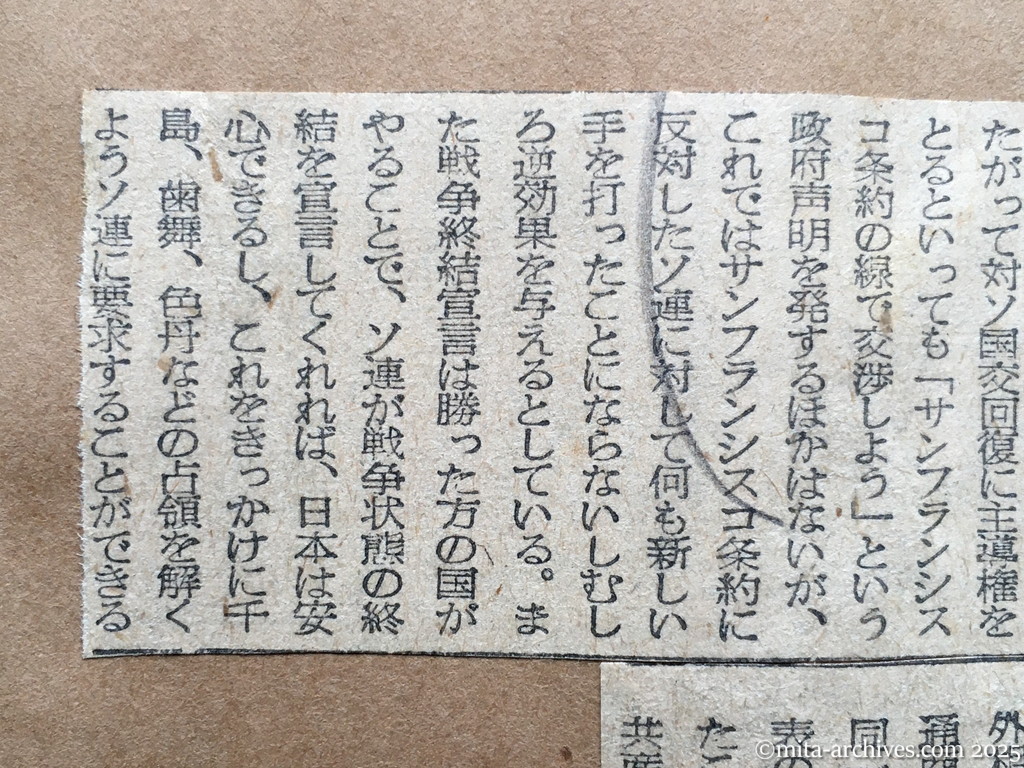 たがって対ソ国交回復に主導権を
とるといっても「サンフランシス
コ条約の線で交渉しよう」という
政府声明を発するほかはないが、
これではサンフランシスコ条約に
反対したソ連に対して何も新しい
手を打ったことにならないしむし
ろ逆効果を与えるとしている。ま
た戦争終結宣言は勝った方の国が
やることで、ソ連が戦争状態の終
結を宣言してくれれば、日本は安
心できるし、これをきっかけに千
島、歯舞、色丹などの占領を解く
ようソ連に要求することができる
外
通
同
表の
た
共産
©mita-archives.com 2025